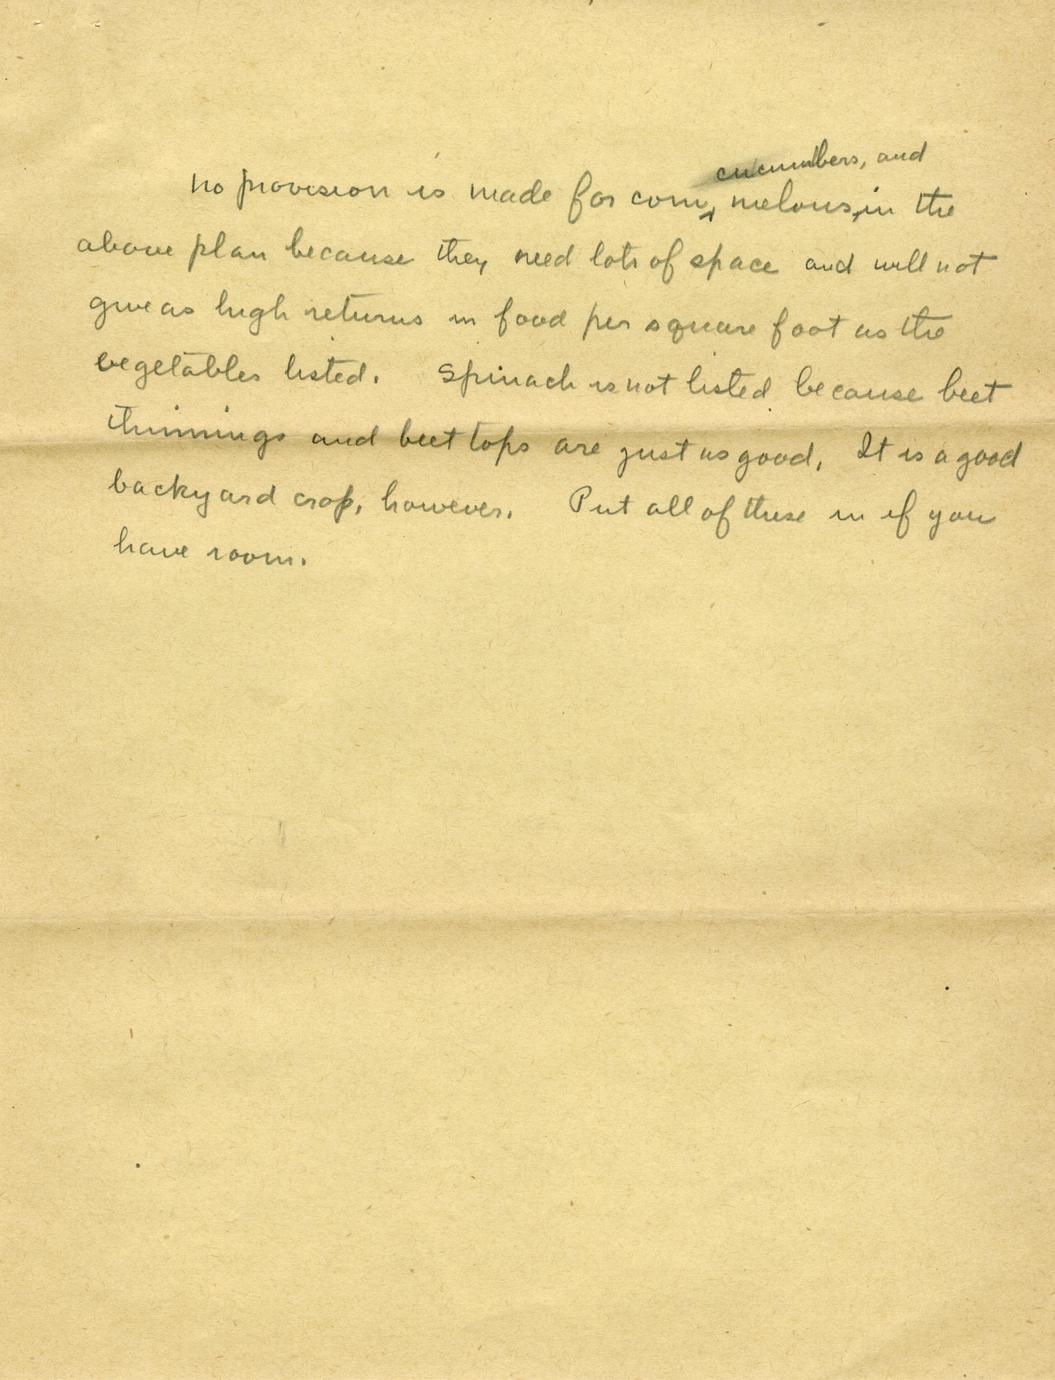 cucumbers, and
no provision is made for corn, melons, in the
above plan because they need lots of space and will not
give as high returns in food per square foot as the
vegetables listed. Spinach is not listed because beet
thinnings and beet tops are just as good. It is a good
backyard crop, however. Put all of these in if you
have room.